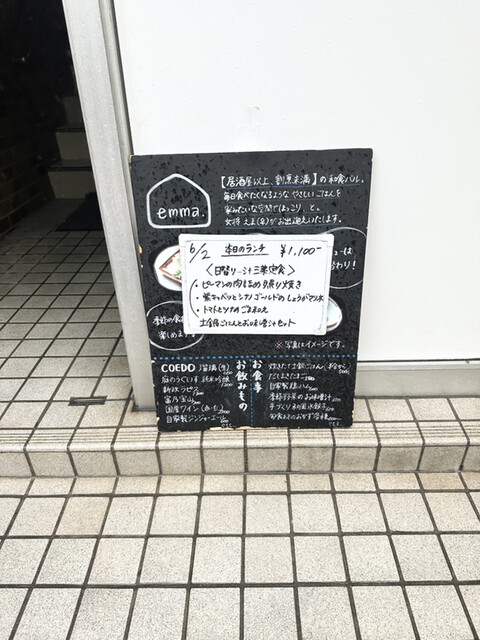 emma.
【居酒屋以上、割烹未満】の和食バル。
毎日食べたくなるような やさしいごはんを
家みたいな空間で「ほっこり」と。
女将 えま(名)がお出迎えいたします。
6/2 本日のランチ ¥1,100-
〈日替り一汁三菜定食〉
・ピーマンの肉詰め照り焼き
・紫キャベツとシナノゴールドのしょうがマリネ
・トマトとツナのごま和え
土釜ごはんとお味噌汁セット
季節の食
楽しめます
※写真はイメージです。
お食事
お飲みもの
COEDO 瑠璃(生)
庭のうぐいす 純米吟醸
富乃宝山
国産ワイン(赤・白)
自家製ジンジャーエール
炊きたて土鍋ごはん
だしまきたまご
自家製
季節野菜のお味噌汁
手づくり水餃子